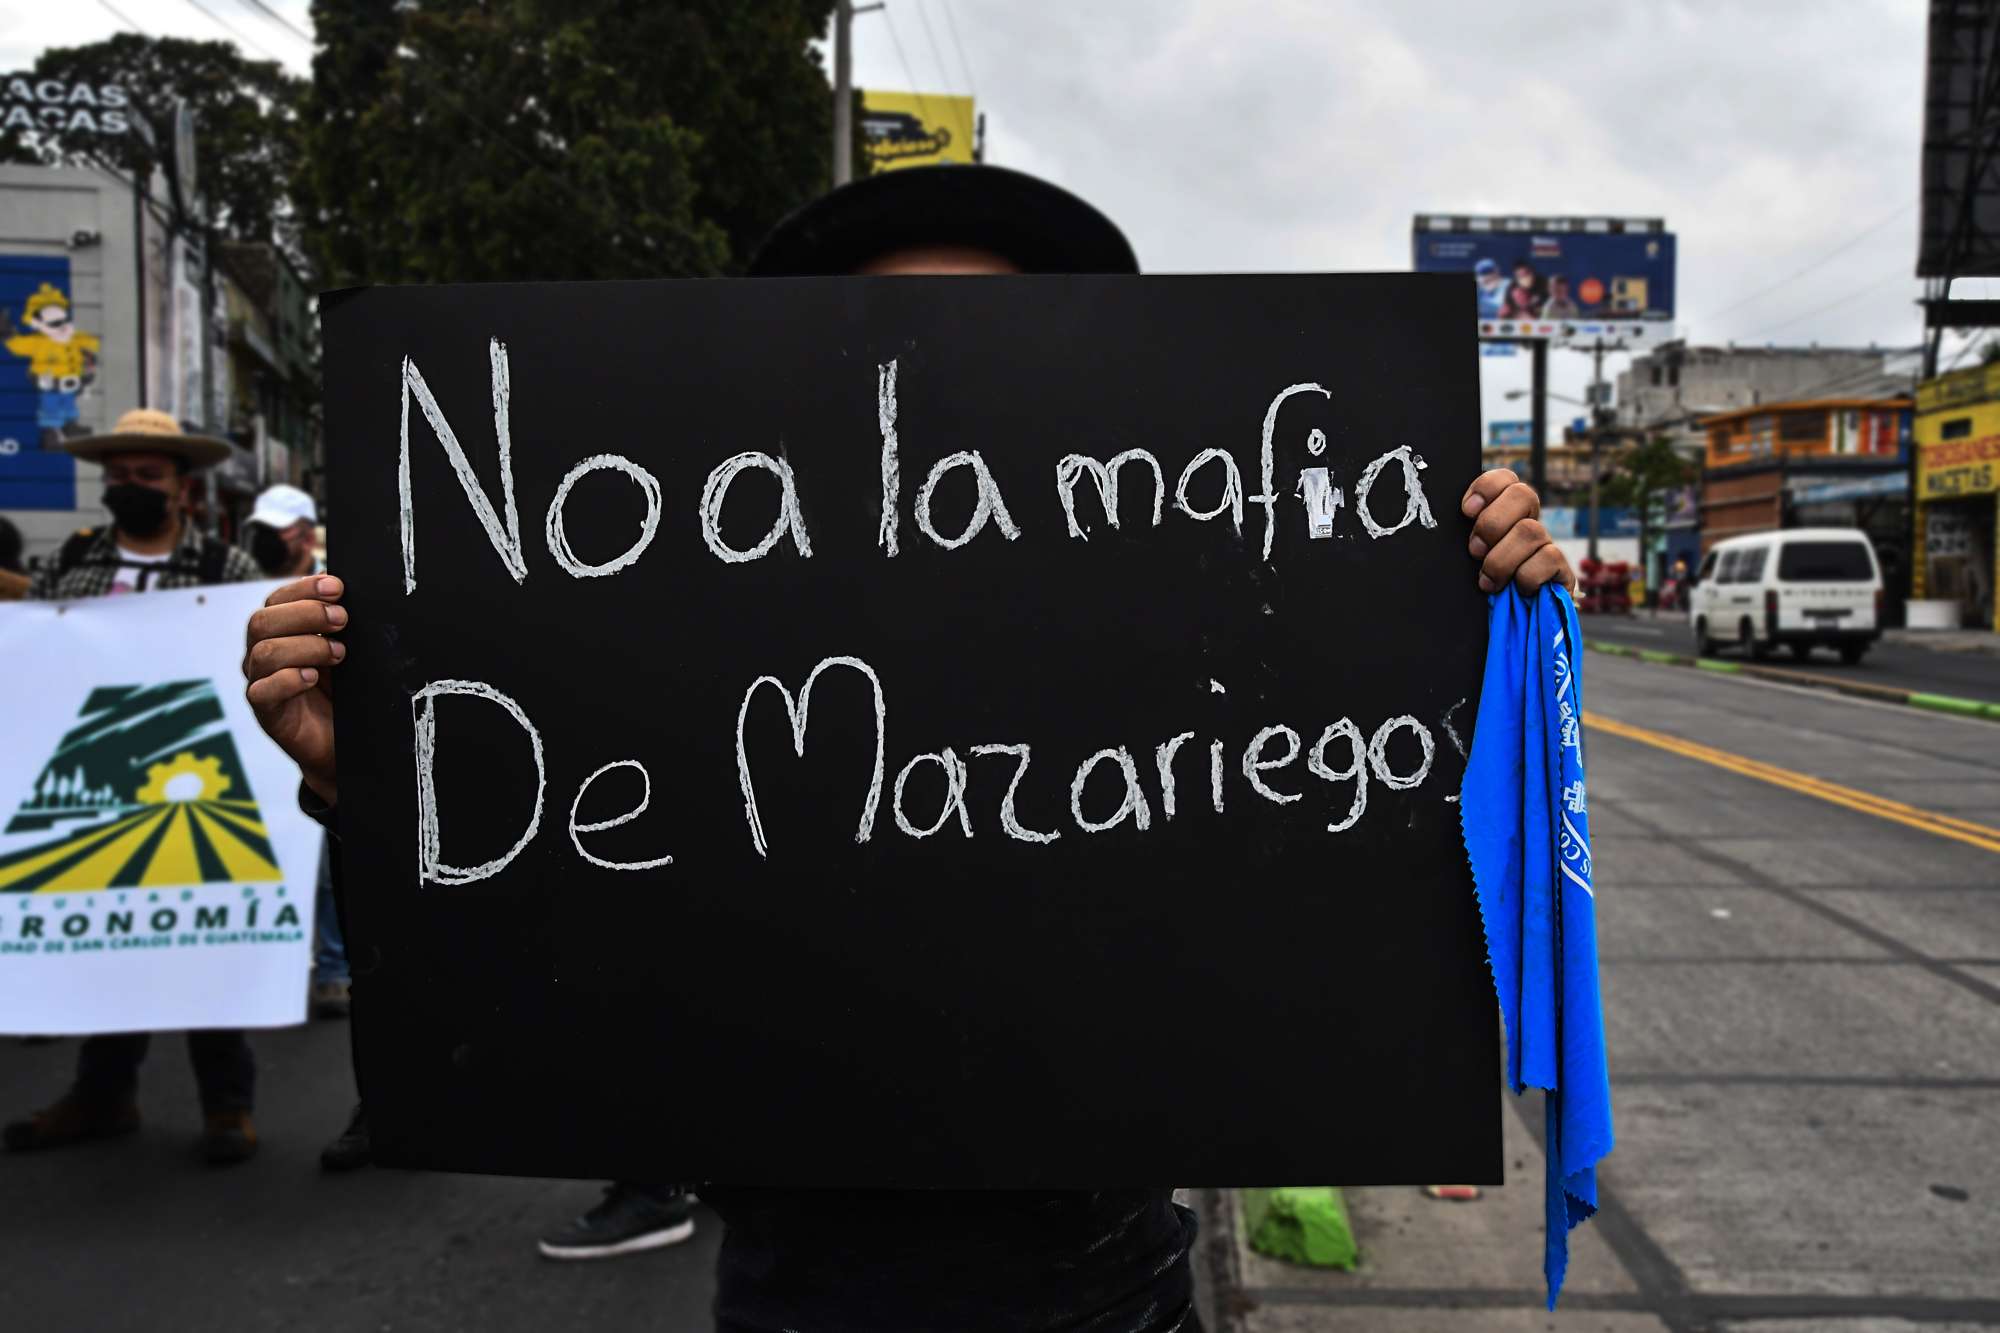 No a la mafia
De Mazariegos
ACAS
ACAS
CULTAD DE
RONOMÍA
DAD DE SAN CARLOS DE GUATEMALA
MACETAS
MITSUBISHI